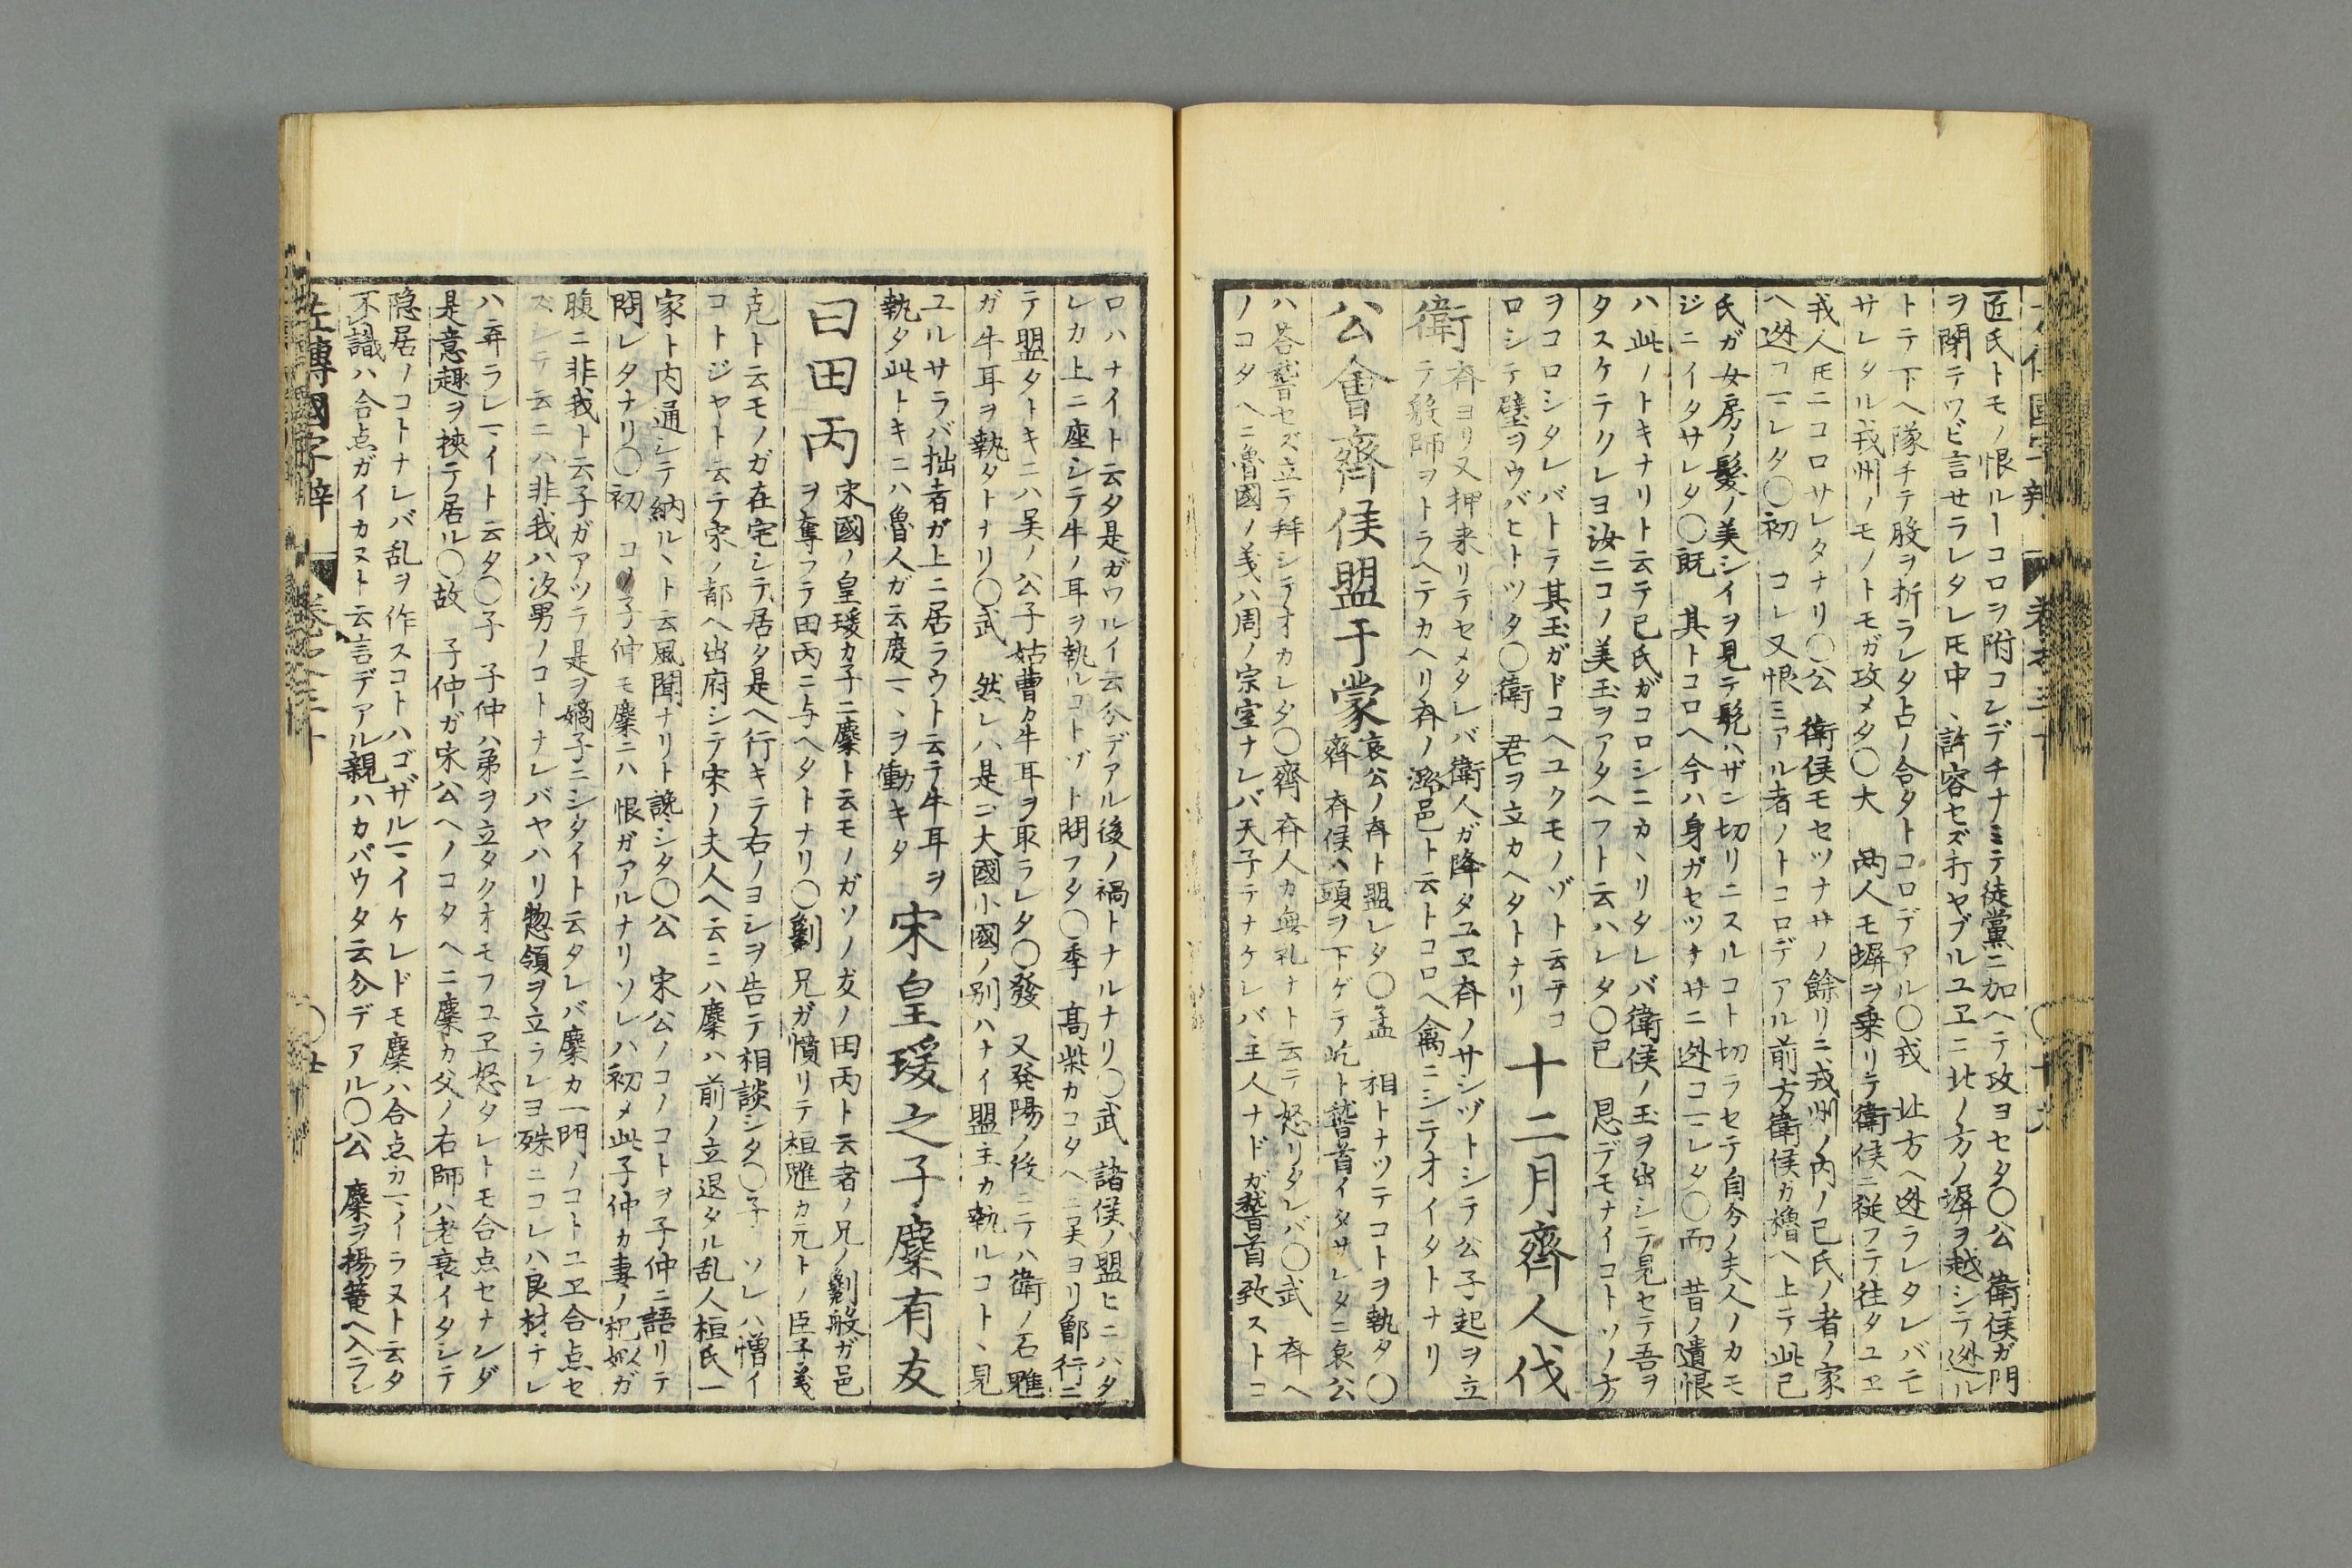 匠氏トモノ恨ルーコロヲ附コンデチナミテ徒黨ニ加ヘテ攻ヨセタ〇公 衛侯ガ門
ヲ閉テワビ言せラレタレ𪜈中〻許容セズ打ヤブルユヱニ北ノ方ノ墀ヲ越シテ迯ル
トテ下ヘ隊チテ股ヲ折ラレタ占ノ合タトコロデアル〇戎 北方ヘ迯ラレタレバ亡
サレタル戎州ノモノトモガ攻メタ〇大 両人モ墀ヲ乗リテ衛侯ニ従フテ往タユヱ
戎人𪜈ニコロサレタナリ〇公 衛侯モセツナサノ餘リニ戎州ノ内ノ己氏ノ者ノ家
ヘ迯コマレタ〇初 コレ又恨ミアル者ノトコロデアル前方衛侯ガ櫓ヘ上テ此己
氏ガ女房ノ髪ノ美シイヲ見テ髡ハザン切リニスルコト切ラセテ自分ノ夫人ノカモ
ジニイタサレタ〇既 其トコロヘ今ハ身ガセツナサニ迯コマレタ〇而 昔ノ遺恨
ハ此ノトキナリト云テ己氏ガコロシニカヽリタレバ衛侯ノ玉ヲ出シテ見セテ吾ヲ
タスケテクレヨ汝ニコノ美玉ヲアタヘフト云ハレタ〇己 㤙デモナイコトソノ方
ヲコロシタレバトテ其玉ガドコヘユクモノゾト云テコ
ロシテ璧ヲウバヒトツタ〇衛 君ヲ立カヘタトナリ
十二月齊人伐
衛
斉ヨリ又押来リテセメタレバ衛人ガ降タユヱ斉ノサシヅトシテ公子起ヲ立
テ般師ヲトラヘテカヘリ斉ノ潞邑ト云トコロヘ禽ニシテオイタトナリ
公會齊侯盟于蒙
哀公ノ斉ト盟レタ〇孟 相トナツテコトヲ執タ〇
齊 斉侯ヘ頭ヲ下ゲテ屹ト䭬首イタサレタニ哀公
ハ荅䭬セズ立テ拜シテオカレタ〇齊 斉人カ無礼ナト云テ怒リタレバ〇武 斉ヘ
ノコタヘニ魯國ノ義ハ周ノ宗室ナレバ天子テナケレバ主人ナドガ䭬首致ストコ
ロハナイト云タ是ガワルイ云分デアル後ノ禍トナルナリ〇武 諸侯ノ盟ヒニハタ
レカ上ニ座シテ牛ノ耳ヲ執ルコトゾト問フタ〇季 髙柴カコタヘニ吴ヨリ鄫行ニ
テ盟タトキニハ吴ノ公子姑曹カ牛耳ヲ取ラレタ〇發 又発陽ノ役ニテハ衛ノ石魋
ガ牛耳ヲ執タトナリ〇武 然レハ是ニ大國小國ノ別ハナイ盟主カ執ルコトヽ見
ユルサラバ拙者ガ上ニ居ラウト云テ牛耳ヲ
執タ此トキニハ魯人ガ云度マヽヲ働キタ
宋皇瑗之子麇有友
曰田丙
宋國ノ皇瑗カ子ニ麇ト云モノガソノ友ノ田丙ト云者ノ兄ノ劖般ガ邑
ヲ奪フテ田丙ニ与ヘタトナリ〇劖 兄ガ憤リテ桓魋カ元トノ臣子儀
克ト云モノガ在宅シテ居タ是ヘ行キテ右ノヨシヲ告テ相談シタ〇子 ソレハ憎イ
コトジヤト云テ宋ノ都ヘ出府シテ宋ノ夫人ヘ云ニハ麇ハ前ノ立退タル乱人桓氏一
家ト内通シテ納ルヽト云風聞ナリト讒シタ〇公 宋公ノコノコトヲ子仲ニ語リテ
問レタナリ〇初 コノ子仲モ麇ニハ恨ガアルナリソレハ初メ此子仲カ妻ノ杞姒ガ
腹ニ非我ト云子ガアツテ是ヲ嫡子ニシタイト云タレバ麇カ一門ノコトユヱ合点セ
ズシテ云ニハ非我ハ次男ノコトナレバヤハリ惣領ヲ立ラレヨ殊ニコレハ良材ナレ
ハ弃ラレマイト云タ〇子 子仲ハ弟ヲ立タクオモフユヱ怒タレトモ合点セナンダ
是意趣ヲ挾テ居ル〇故 子仲ガ宋公ヘノコタヘニ麇カ父ノ右師ハ老衰イタシテ
隠居ノコトナレバ乱ヲ作スコトハゴザルマイケレドモ麇ハ合点カマイラヌト云タ
不識ハ合点ガイカヌト云言デアル親ハカバウタ云分デアル〇公 麇ヲ揚篭ヘ入ラレ
左傳國字辯